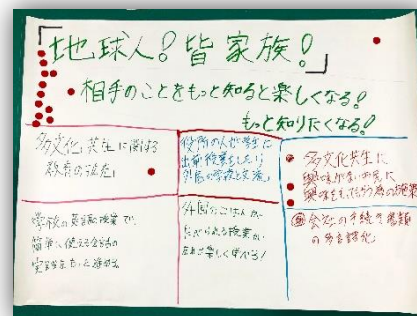 「地球人!皆家族!」
相手のことをもっと知ると楽しくなる!
もっと知りたくなる!
多文化共生に関する
教育の
役所の人が学生に
出前授業をしたり
学校と交流」
多文化共生に
興味がない市民に
興味をもってもらう為の施策
学校の英会話授業で、
簡単に使える会話の
外国のごはんが
食べられる授業が
楽しく学べる!
会社の手続き書類
の多言語化